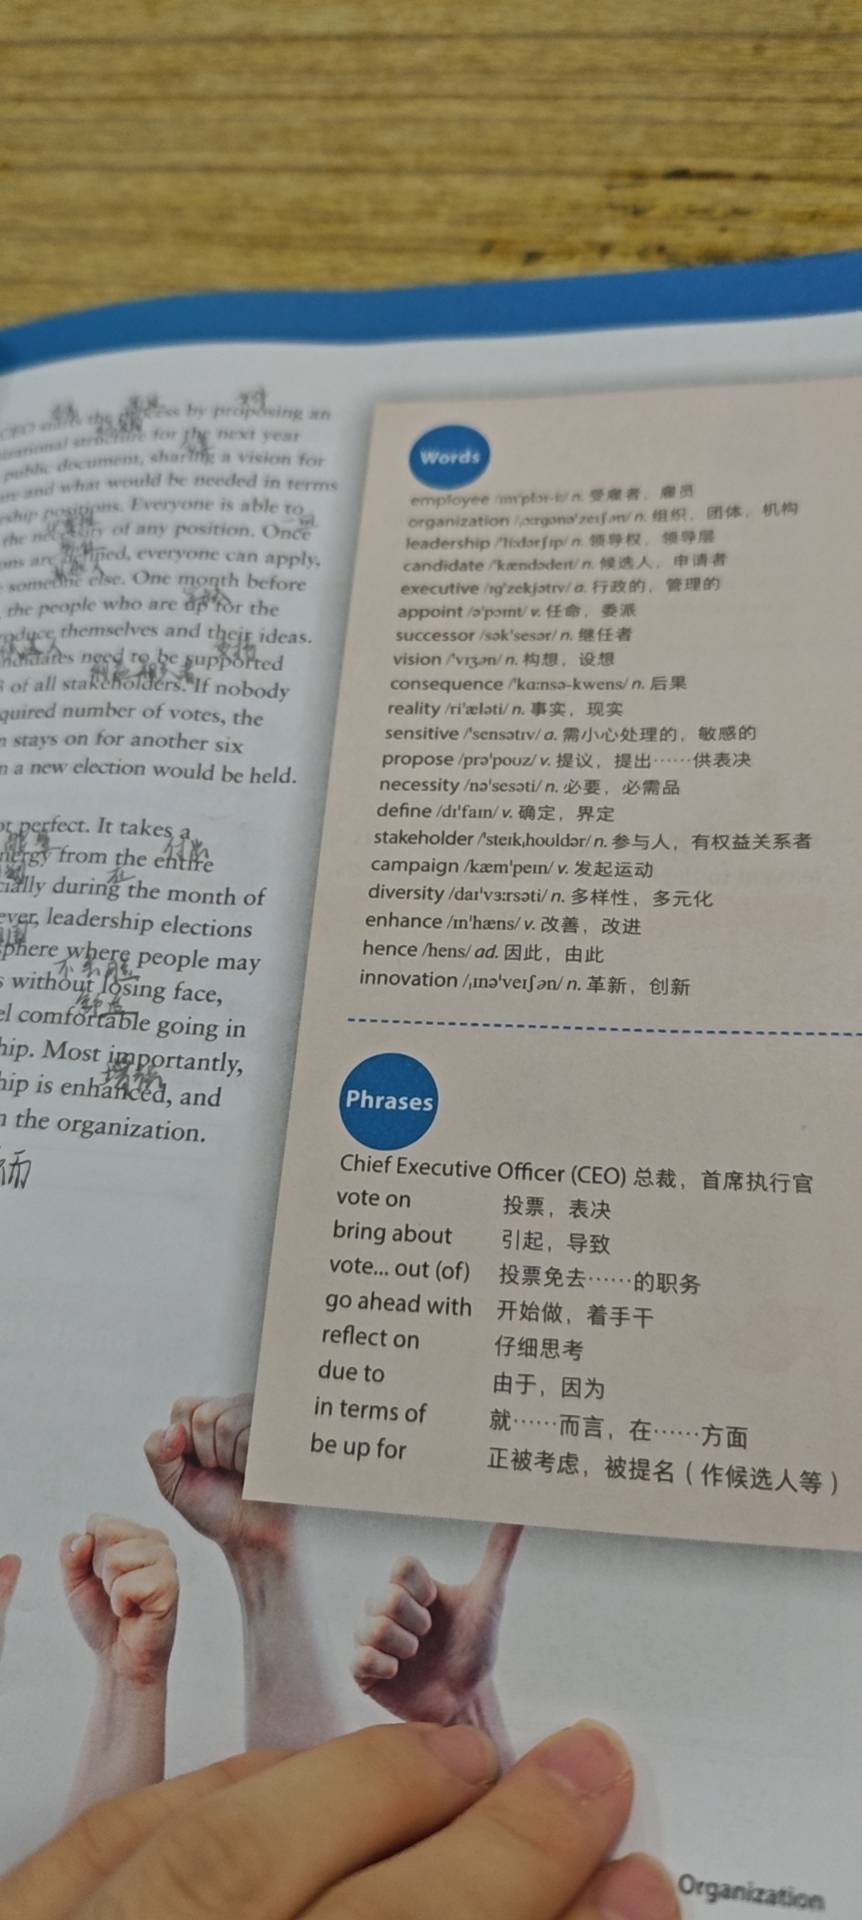 process by proposing an
structure for the next year
public document, sharing a vision for
and what would be needed in terms
positions. Everyone is able to
the necessity of any position. Once
are defined, everyone can apply,
someone else. One month before
the people who are up for the
themselves and their ideas.
need to be supported
of all stakeholders. If nobody
number of votes, the
stays on for another six
a new election would be held.
perfect. It takes a
from the entire
during the month of
leadership elections
where people may
without losing face,
comfortable going in
Most importantly,
is enhanced, and
the organization.
Words
employee n. 受雇者，雇员
organization n. 组织，团体，机构
leadership n. 领导权，领导层
candidate /ˈkændədeɪt/ n. 候选人，申请者
executive /ɪɡˈzekjətɪv/ a. 行政的，管理的
appoint /əˈpɔɪnt/ v. 任命，委派
successor /səkˈsesər/ n. 继任者
vision /ˈvɪʒən/ n. 构想，设想
consequence /ˈkɑːnsə-kwens/ n. 后果
reality /riˈæləti/ n. 事实，现实
sensitive /ˈsensətɪv/ a. 需小心处理的，敏感的
propose /prəˈpoʊz/ v. 提议，提出……供表决
necessity /nəˈsesəti/ n. 必要，必需品
define /dɪˈfaɪn/ v. 确定，界定
stakeholder /ˈsteɪkˌhoʊldər/ n. 参与人，有权益关系者
campaign /kæmˈpeɪn/ v. 发起运动
diversity /daɪˈvɜːrsəti/ n. 多样性，多元化
enhance /ɪnˈhæns/ v. 改善，改进
hence /hens/ ad. 因此，由此
innovation /ˌɪnəˈveɪʃən/ n. 革新，创新
Phrases
Chief Executive Officer (CEO) 总裁，首席执行官
vote on 投票，表决
bring about 引起，导致
vote... out (of) 投票免去……的职务
go ahead with 开始做，着手干
reflect on 仔细思考
due to 由于，因为
in terms of 就……而言，在……方面
be up for 正被考虑，被提名（作候选人等）
Organization